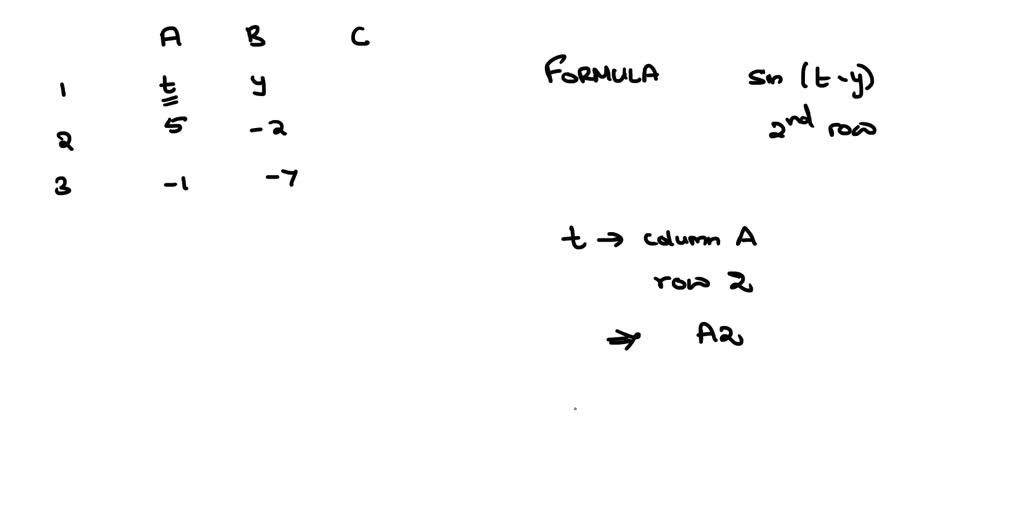 A B C
1 t y
2 5 -2
3 -1 -7
FORMULA sin (t-y)
2nd row
t → column A
row 2
⇒ A2